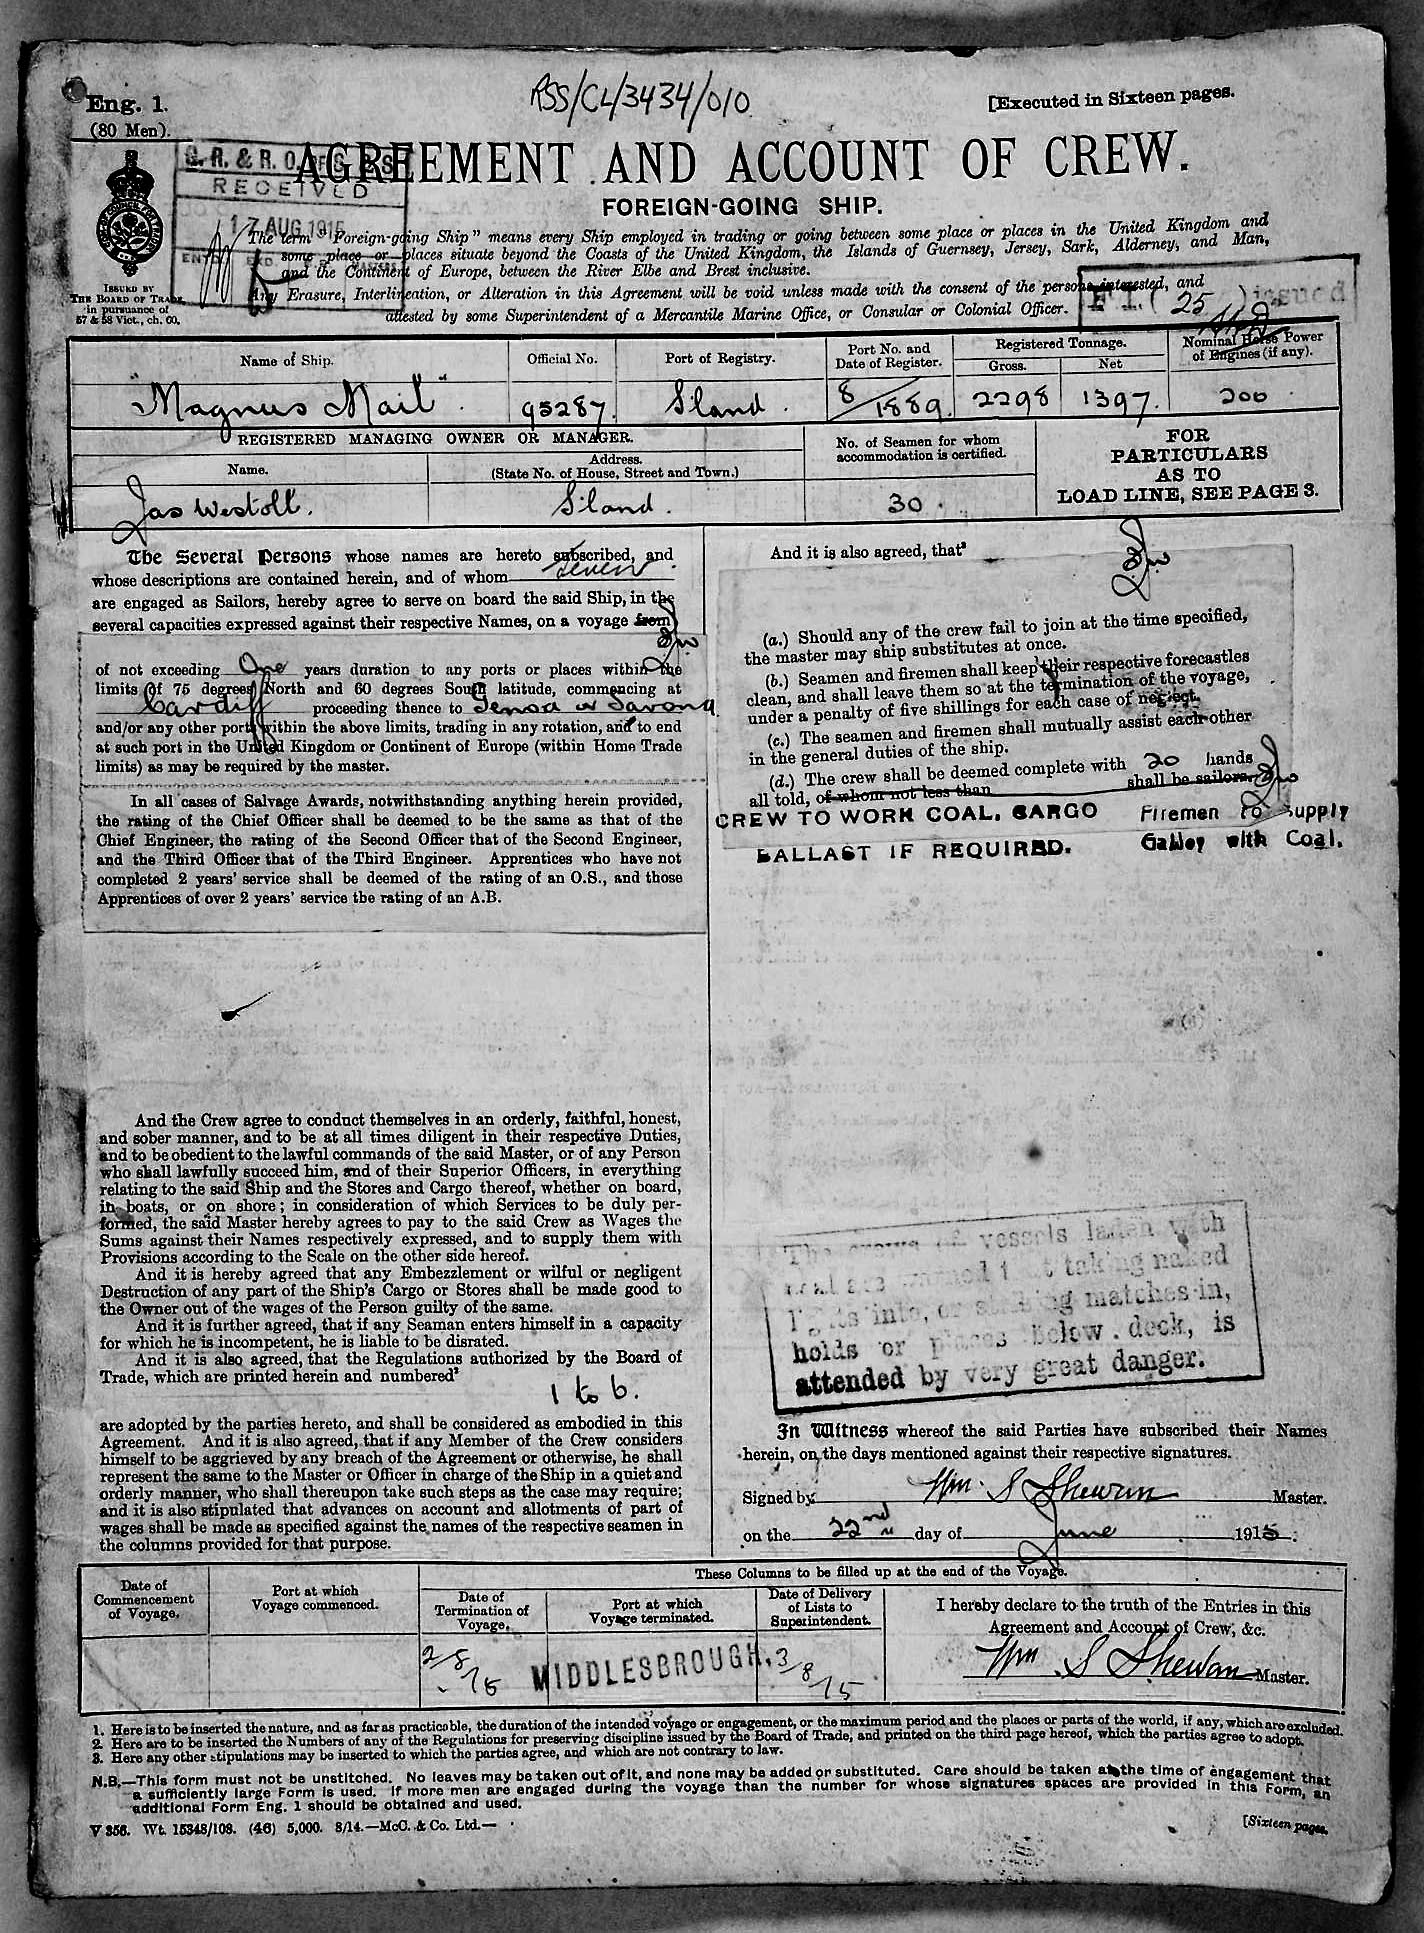 RSS/CL/3434/010
Eng. 1.
(80 Men).
[Executed in Sixteen pages.
RECEIVED
17 AUG 1915
AGREEMENT AND ACCOUNT OF CREW.
FOREIGN-GOING SHIP.
The term "Foreign-going Ship" means every Ship employed in trading or going between some place or places in the United Kingdom and
some place or places situate beyond the Coasts of the United Kingdom, the Islands of Guernsey, Jersey, Sark, Alderney, and Man,
and the Continent of Europe, between the River Elbe and Brest inclusive.
Any Erasure, Interlineation, or Alteration in this Agreement will be void unless made with the consent of the persons interested, and
attested by some Superintendent of a Mercantile Marine Office, or Consular or Colonial Officer.
ISSUED BY
THE BOARD OF TRADE
in pursuance of
57 & 58 Vict., ch. 60.
( 25 ) issued
Name of Ship.
Official No.
Port of Registry.
Port No. and
Date of Register.
Registered Tonnage.
Gross.
Net
Nominal Horse Power
of Engines (if any).
"Magnus Mail".
95287.
S'land.
8/1889.
2298
1397.
200
REGISTERED MANAGING OWNER OR MANAGER.
Name.
Address.
(State No. of House, Street and Town.)
No. of Seamen for whom
accommodation is certified.
FOR
PARTICULARS
AS TO
LOAD LINE, SEE PAGE 3.
Jas Westoll.
S'land.
30.
The Several Persons whose names are hereto subscribed, and
whose descriptions are contained herein, and of whom seven
are engaged as Sailors, hereby agree to serve on board the said Ship, in the
several capacities expressed against their respective Names, on a voyage from
of not exceeding One years duration to any ports or places within the
limits of 75 degrees North and 60 degrees South latitude, commencing at
Cardiff proceeding thence to Genoa or Savona
and/or any other ports within the above limits, trading in any rotation, and to end
at such port in the United Kingdom or Continent of Europe (within Home Trade
limits) as may be required by the master.
In all cases of Salvage Awards, notwithstanding anything herein provided,
the rating of the Chief Officer shall be deemed to be the same as that of the
Chief Engineer, the rating of the Second Officer that of the Second Engineer,
and the Third Officer that of the Third Engineer. Apprentices who have not
completed 2 years' service shall be deemed of the rating of an O.S., and those
Apprentices of over 2 years' service the rating of an A.B.
And the Crew agree to conduct themselves in an orderly, faithful, honest,
and sober manner, and to be at all times diligent in their respective Duties,
and to be obedient to the lawful commands of the said Master, or of any Person
who shall lawfully succeed him, and of their Superior Officers, in everything
relating to the said Ship and the Stores and Cargo thereof, whether on board,
in boats, or on shore; in consideration of which Services to be duly per-
formed, the said Master hereby agrees to pay to the said Crew as Wages the
Sums against their Names respectively expressed, and to supply them with
Provisions according to the Scale on the other side hereof.
And it is hereby agreed that any Embezzlement or wilful or negligent
Destruction of any part of the Ship's Cargo or Stores shall be made good to
the Owner out of the wages of the Person guilty of the same.
And it is further agreed, that if any Seaman enters himself in a capacity
for which he is incompetent, he is liable to be disrated.
And it is also agreed, that the Regulations authorized by the Board of
Trade, which are printed herein and numbered²
1 to 6.
are adopted by the parties hereto, and shall be considered as embodied in this
Agreement. And it is also agreed, that if any Member of the Crew considers
himself to be aggrieved by any breach of the Agreement or otherwise, he shall
represent the same to the Master or Officer in charge of the Ship in a quiet and
orderly manner, who shall thereupon take such steps as the case may require;
and it is also stipulated that advances on account and allotments of part of
wages shall be made as specified against the names of the respective seamen in
the columns provided for that purpose.
And it is also agreed, that³
(a.) Should any of the crew fail to join at the time specified,
the master may ship substitutes at once.
(b.) Seamen and firemen shall keep their respective forecastles
clean, and shall leave them so at the termination of the voyage,
under a penalty of five shillings for each case of neglect.
(c.) The seamen and firemen shall mutually assist each other
in the general duties of the ship.
(d.) The crew shall be deemed complete with 20 hands
all told, of whom not less than shall be sailors.
CREW TO WORK COAL, CARGO
BALLAST IF REQUIRED.
Firemen to Supply
Galley with Coal.
The crews of vessels laden with
coal are warned against taking naked
lights into, or striking matches in,
holds or places below deck, is
attended by very great danger.
In Witness whereof the said Parties have subscribed their Names
herein, on the days mentioned against their respective signatures.
Signed by Wm. S Shewan Master.
on the 22nd day of June 1915.
Date of
Commencement
of Voyage.
Port at which
Voyage commenced.
These Columns to be filled up at the end of the Voyage.
Date of
Termination of
Voyage.
Port at which
Voyage terminated.
Date of Delivery
of Lists to
Superintendent.
I hereby declare to the truth of the Entries in this
Agreement and Account of Crew, &c.
2/8/15
MIDDLESBROUGH.
3/8/15
Wm. S Shewan Master.
1. Here is to be inserted the nature, and as far as practicable, the duration of the intended voyage or engagement, or the maximum period and the places or parts of the world, if any, which are excluded.
2. Here are to be inserted the Numbers of any of the Regulations for preserving discipline issued by the Board of Trade, and printed on the third page hereof, which the parties agree to adopt.
3. Here any other stipulations may be inserted to which the parties agree, and which are not contrary to law.
N.B.—This form must not be unstitched. No leaves may be taken out of it, and none may be added or substituted. Care should be taken at the time of engagement that
a sufficiently large Form is used. If more men are engaged during the voyage than the number for whose signatures spaces are provided in this Form, an
additional Form Eng. 1 should be obtained and used.
V 356. Wt. 15348/108. (46) 5,000. 8/14.—McC. & Co. Ltd.—
[Sixteen pages.